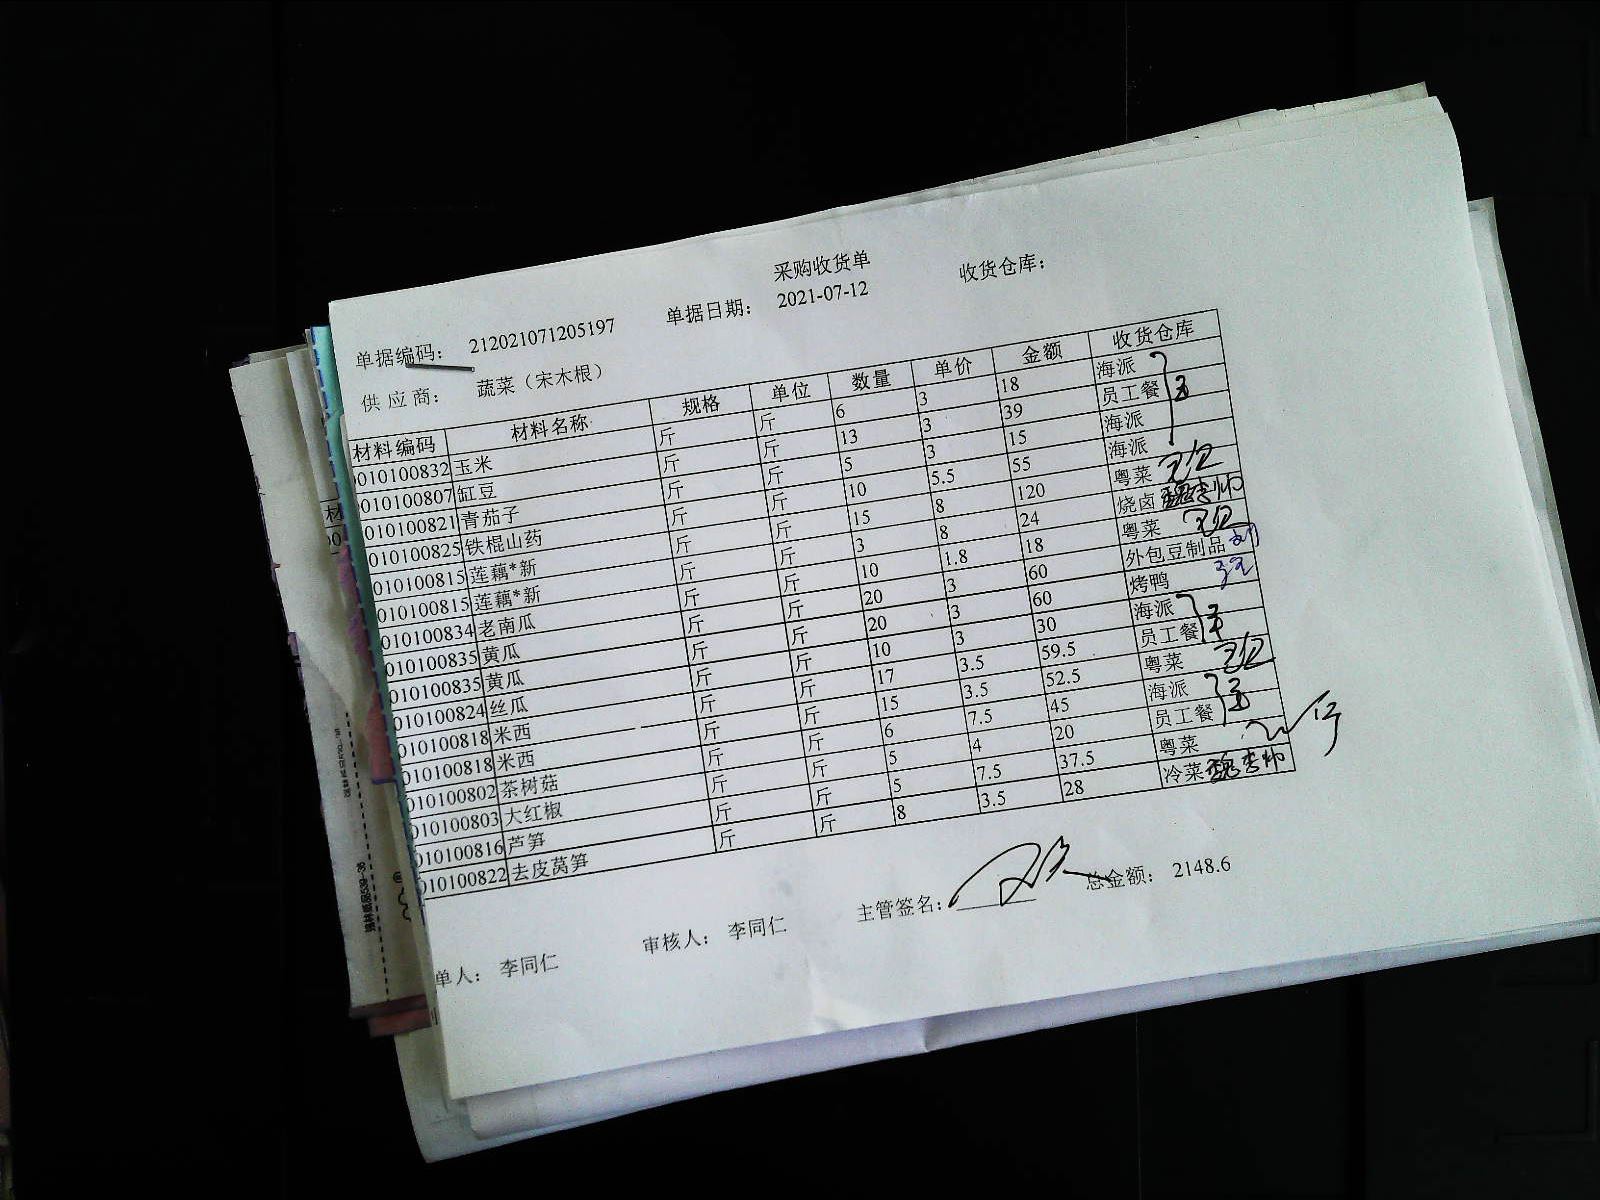 采购收货单
单据编码： 212021071205197 单据日期： 2021-07-12 收货仓库：
供应商： 蔬菜（宋木根）
材料编码 材料名称 规格 单位 数量 单价 金额 收货仓库
010100832 玉米 斤 斤 6 3 18 海派
010100807 缸豆 斤 斤 13 3 39 员工餐
010100821 青茄子 斤 斤 5 3 15 海派
010100825 铁棍山药 斤 斤 10 5.5 55 海派
010100815 莲藕*新 斤 斤 15 8 120 粤菜
010100815 莲藕*新 斤 斤 3 8 24 烧卤
010100834 老南瓜 斤 斤 10 1.8 18 粤菜
010100835 黄瓜 斤 斤 20 3 60 外包豆制品
010100835 黄瓜 斤 斤 20 3 60 烤鸭
010100824 丝瓜 斤 斤 10 3 30 海派
010100818 米西 斤 斤 17 3.5 59.5 员工餐
010100818 米西 斤 斤 15 3.5 52.5 粤菜
010100802 茶树菇 斤 斤 6 7.5 45 海派
010100803 大红椒 斤 斤 5 4 20 员工餐
010100816 芦笋 斤 斤 5 7.5 37.5 粤菜
010100822 去皮莴笋 斤 斤 8 3.5 28 冷菜
单人： 李同仁 审核人： 李同仁 主管签名： 总金额： 2148.6